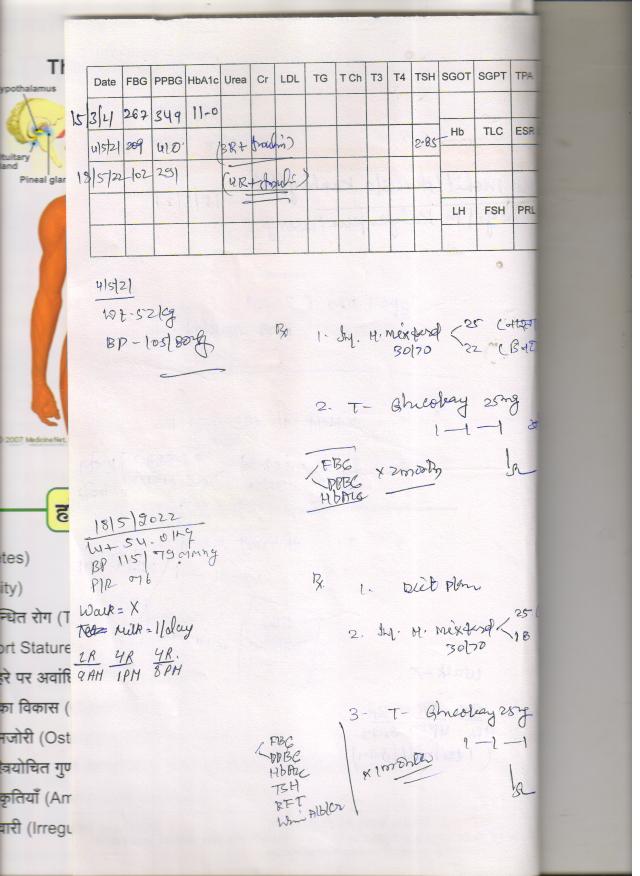 Th
ypothalamus
tuitary
land
Pineal glan
© 2007 MedicineNet,
Date FBG PPBG HbA1c Urea Cr LDL TG T Ch T3 T4 TSH SGOT SGPT TPA
15/3/21 267 349 11.0
4/5/21 209 410 2.85 Hb TLC ESR
18/5/22 102 291
LH FSH PRL
4/5/21
Wt - 52 kg
BP - 105/80
Rx 1. Inj. H. mixtard 25
30/70 22
2. T- Glucobay 25mg
1-1-1
FBG
PPBG x 2 month
HbA1c
18/5/2022
Wt 54.01kg
BP 115/79 mmHg
P/R 076
Walk = X
Milk = 1/day
2R 4R 4R
9AM 1PM 8PM
Rx 1. Diet Plan
2. Inj. H. mixtard 25
30/70 18
3- T- Glucobay 25mg
1-1-1
FBG
PPBG
HbA1c x 1 month
TSH
RFT
ह
etes)
ity)
न्धित रोग (T
ort Stature
हरे पर अवांछि
का विकास (
मजोरी (Ost
त्रियोचित गुण
कृतियाँ (Am
वारी (Irregu